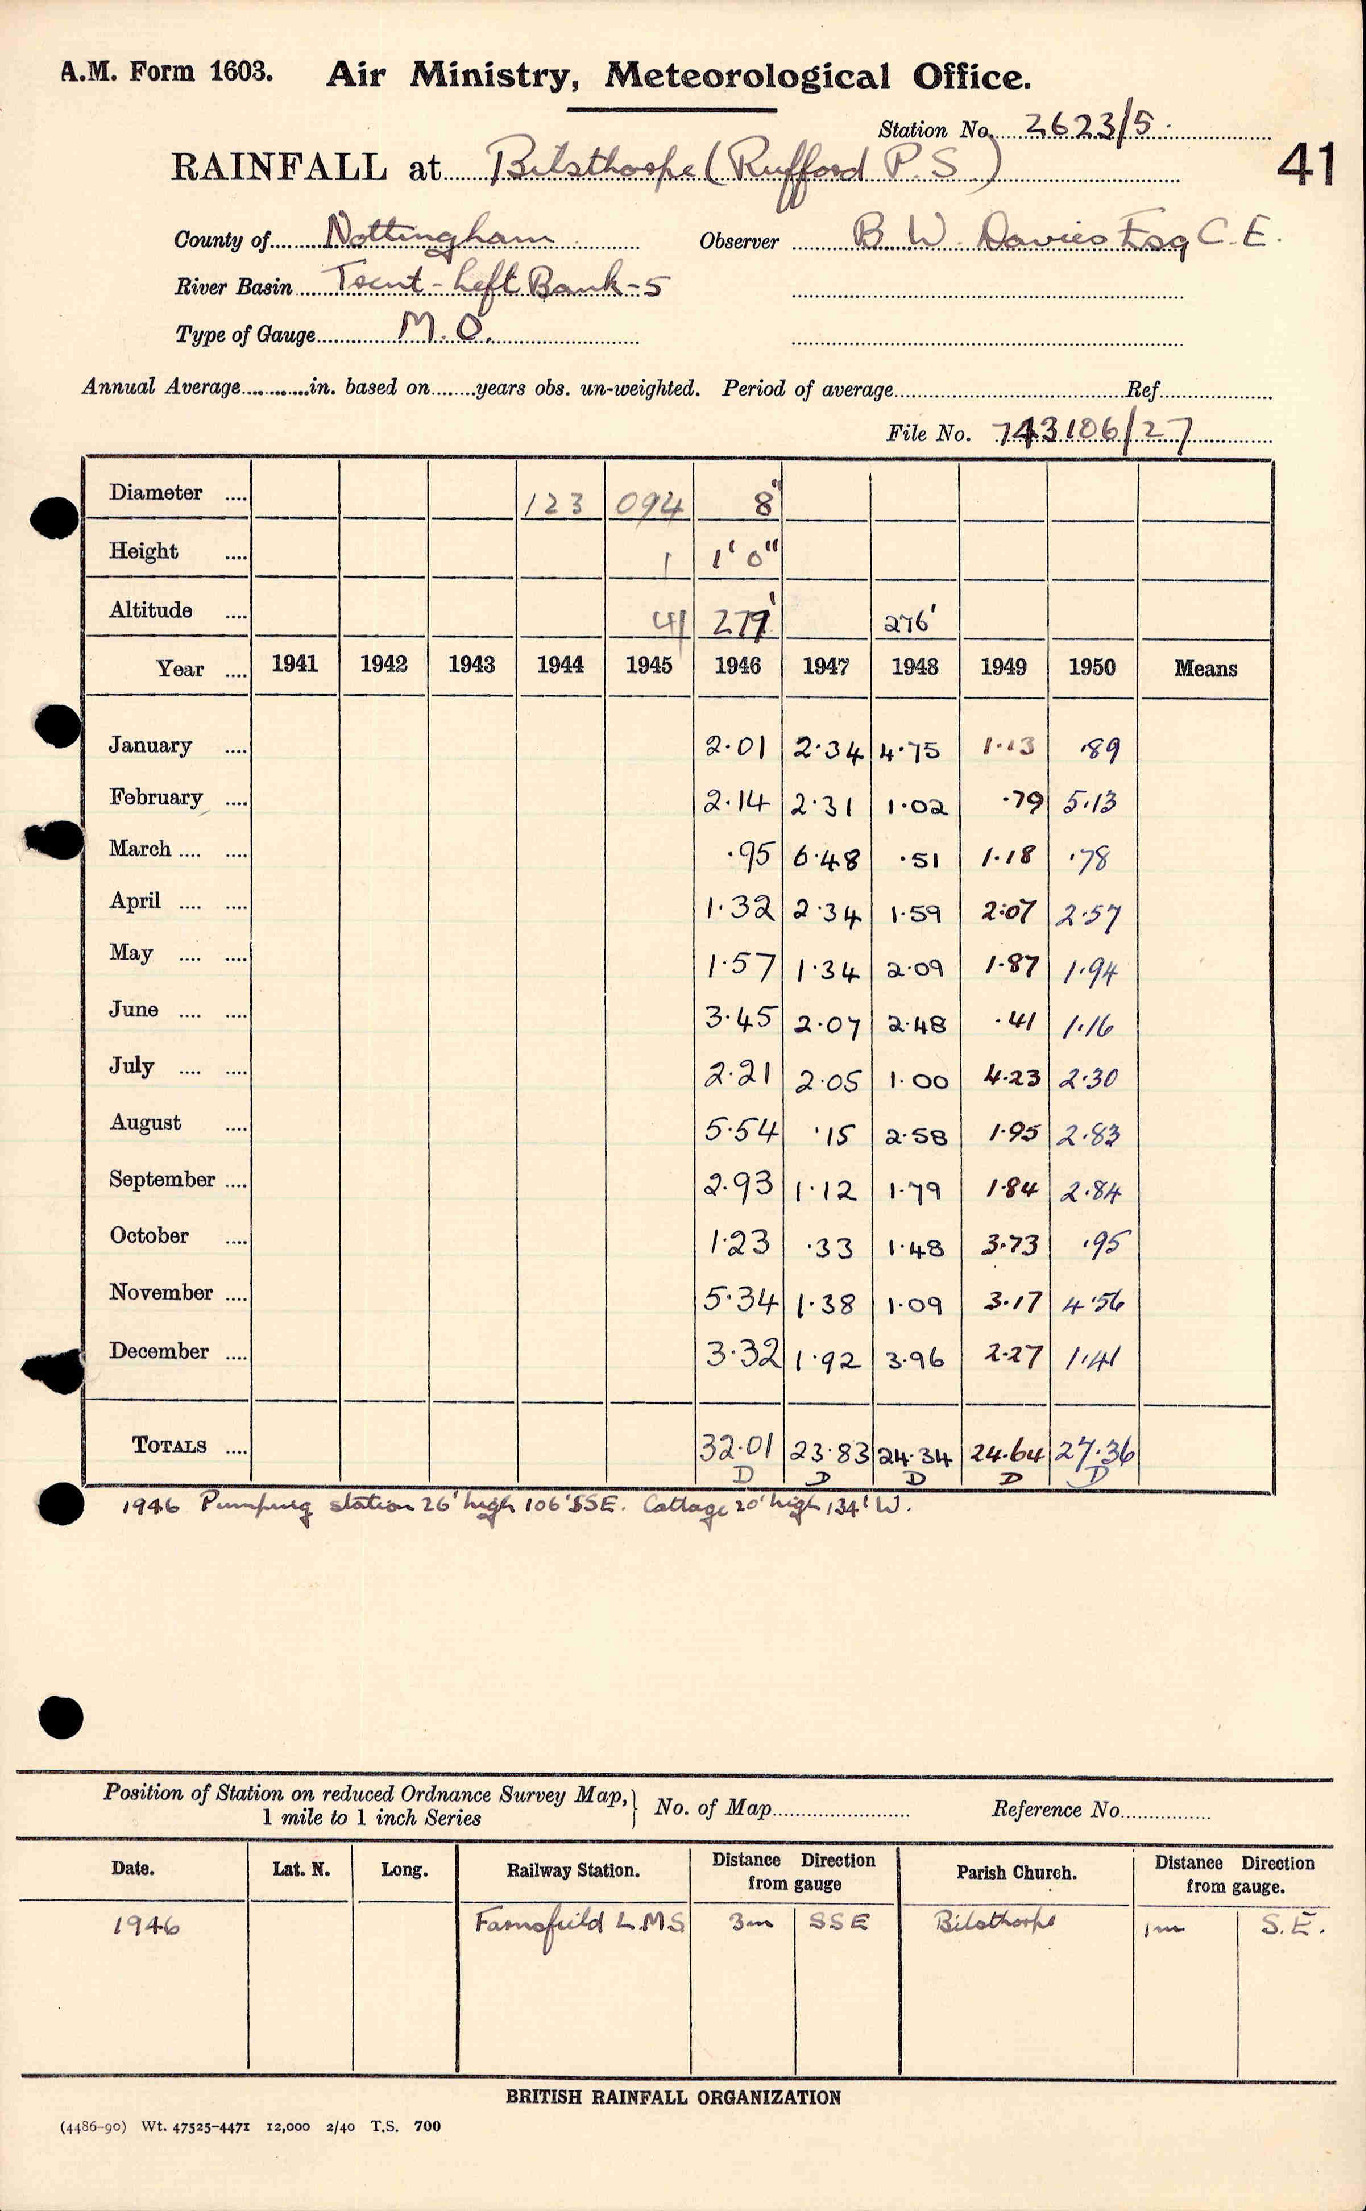 A.M. Form 1603. Air Ministry, Meteorological Office.
Station No. 2623/5.
41
RAINFALL at Bilsthorpe (Rufford P.S.)
County of Nottingham Observer B. W. Davies Esq C.E.
River Basin Trent - Left Bank - 5
Type of Gauge M.O.
Annual Average in. based on years obs. un-weighted. Period of average Ref.
File No. 743106/27
Diameter .... 123 094 8"
Height .... 1 1' 0"
Altitude .... 41 279' 276'
Year .... 1941 1942 1943 1944 1945 1946 1947 1948 1949 1950 Means
January .... 2.01 2.34 4.75 1.13 .89
February .... 2.14 2.31 1.02 .79 5.13
March .... .... .95 6.48 .51 1.18 .78
April .... .... 1.32 2.34 1.59 2.07 2.57
May .... .... 1.57 1.34 2.09 1.87 1.94
June .... .... 3.45 2.07 2.48 .41 1.16
July .... .... 2.21 2.05 1.00 4.23 2.30
August .... 5.54 .15 2.58 1.95 2.83
September .... 2.93 1.12 1.79 1.84 2.84
October .... 1.23 .33 1.48 3.73 .95
November .... 5.34 1.38 1.09 3.17 4.56
December .... 3.32 1.92 3.96 2.27 1.41
TOTALS .... 32.01 23.83 24.34 24.64 27.36
D D D D D
1946 Pumping station 26' high 106' SSE. Cottage 20' high 134' W.
Position of Station on reduced Ordnance Survey Map, 1 mile to 1 inch Series } No. of Map Reference No.
Date. Lat. N. Long. Railway Station. Distance Direction from gauge Parish Church. Distance Direction from gauge.
1946 Farnsfield L.M.S 3m SSE Bilsthorpe 1m S.E.
BRITISH RAINFALL ORGANIZATION
(4486-90) Wt. 47525-4471 12,000 2/40 T.S. 700